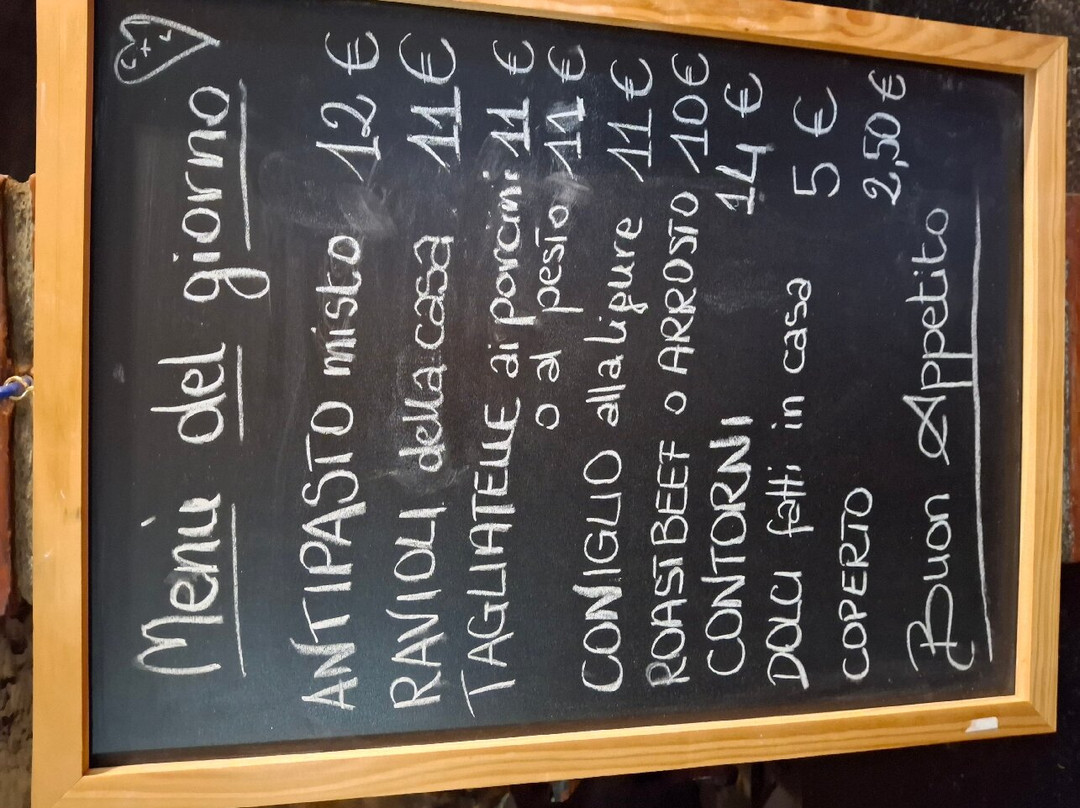 Menù del giorno
ANTIPASTO misto 12 €
RAVIOLI della casa 11 €
TAGLIATELLE ai porcini 11 €
o al pesto 11 €
CONIGLIO alla ligure 11 €
ROASTBEEF o ARROSTO 10 €
CONTORNI 14 €
DOLCI fatti in casa 5 €
COPERTO 2,50 €
Buon Appetito